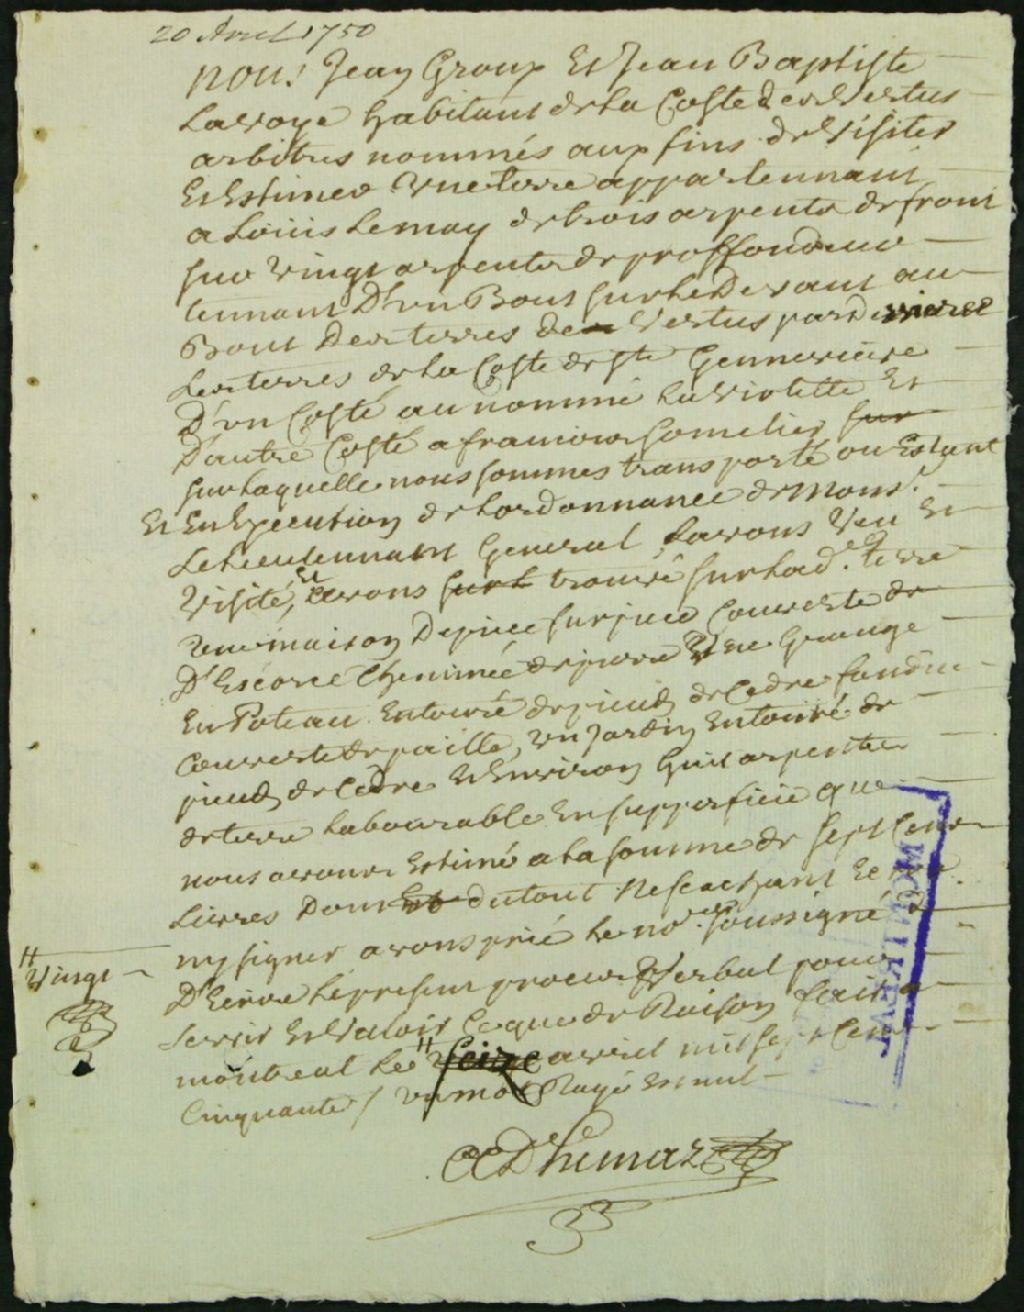 20 Avril 1750
nous Jean Groux Et Jean Baptiste
Lavoye habitant de la Coste des Vertus
arbitres nommés aux fins de Visiter
Et Estimer Une terre appartennant
a Loüis Lemay de trois arpents de front
sur Vingt arpents de proffondeur
tennant D'un Bout sur le Devant au
Bout Des terres des Vertus par Derriere
Les terres de la Coste de Ste Gennevieve
D'un Costé au nommé LaViolette Et
D'autre Costé a francois Somelier sur
sur laquelle nous sommes transporté ou Estant
Et En Execution de Lordonnance de Mons.r
Le Lieutennant General, Lavons Veu Et
Visité, et avons sur L trouvé sur lad.e terre
une maison De piece sur piece Couverte de
D'Escorce Cheminée de pierre Une Grange
En Poteau Entouré de pieux de Cedre fendüe
Couverte de paille, un Jardin Entouré de
pieux de Cedre Et Environ huit arpents
de terre Labourable En supperficie que
nous avons Estimé a la somme de sept Cent
Livres Dont du tout Ne scachant Ecrire
ny signer avons prié le no.re soussigné
D'Ecrire le present procès Verbal pour
servir Et Valoir Ce que de Raison fait a
montreal Le seize avril mil sept Cent
Vingt
Cinquante / un mot Rayé Est nul
Adhemar